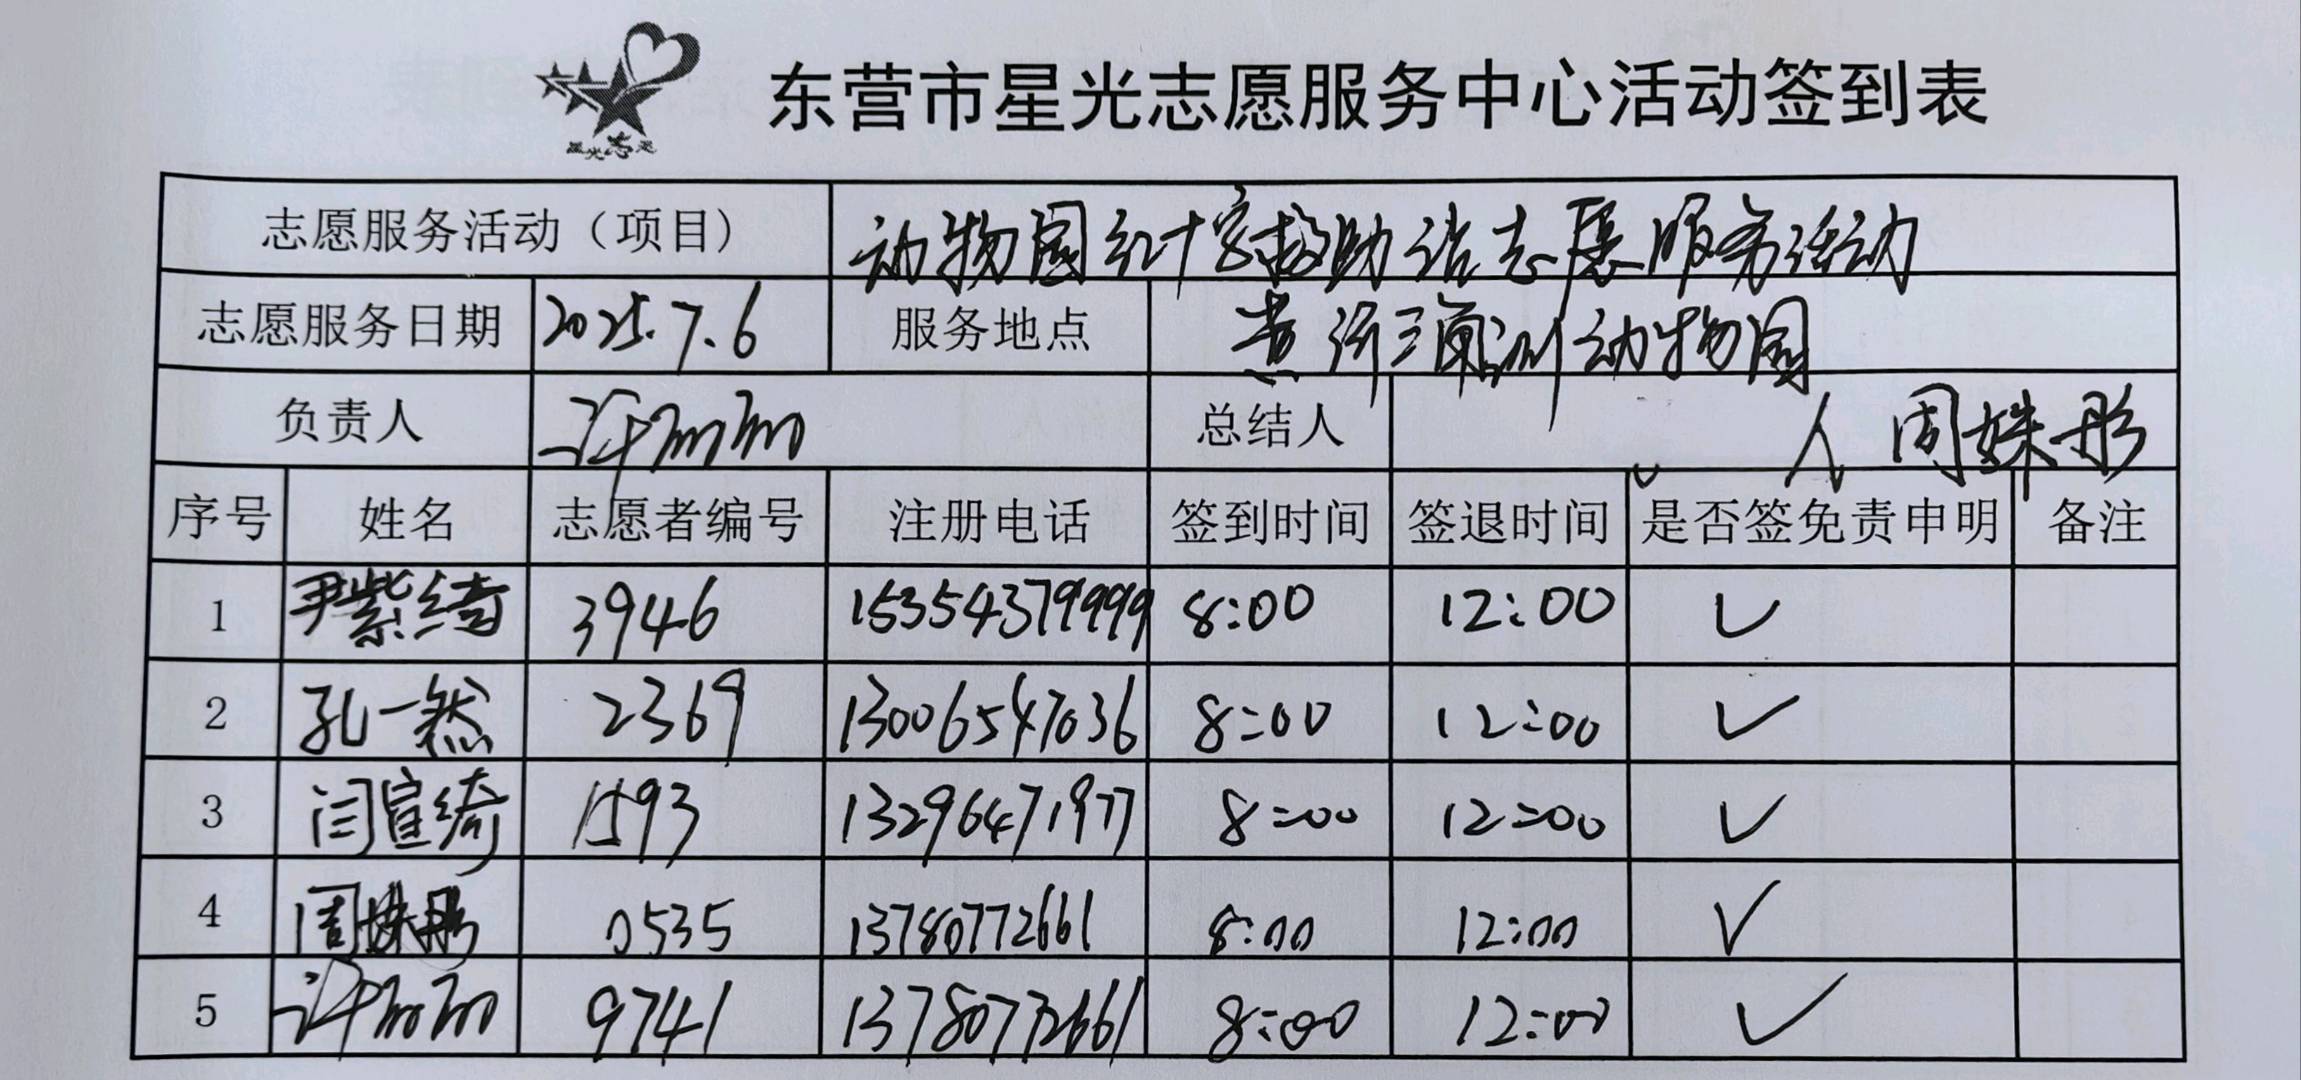 星光志愿
东营市星光志愿服务中心活动签到表
志愿服务活动（项目） 动物园红十字救助站志愿服务活动
志愿服务日期 2025.7.6 服务地点 黄河三角洲动物园
负责人 许丽丽 总结人 人 周姝彤
序号 姓名 志愿者编号 注册电话 签到时间 签退时间 是否签免责申明 备注
1 尹紫绮 3946 15354379999 8:00 12:00 ✓
2 孔一然 2369 13006547036 8:00 12:00 ✓
3 闫宣绮 1593 13296471977 8:00 12:00 ✓
4 周姝彤 0535 13780772661 8:00 12:00 ✓
5 许丽丽 9741 13780772661 8:00 12:00 ✓